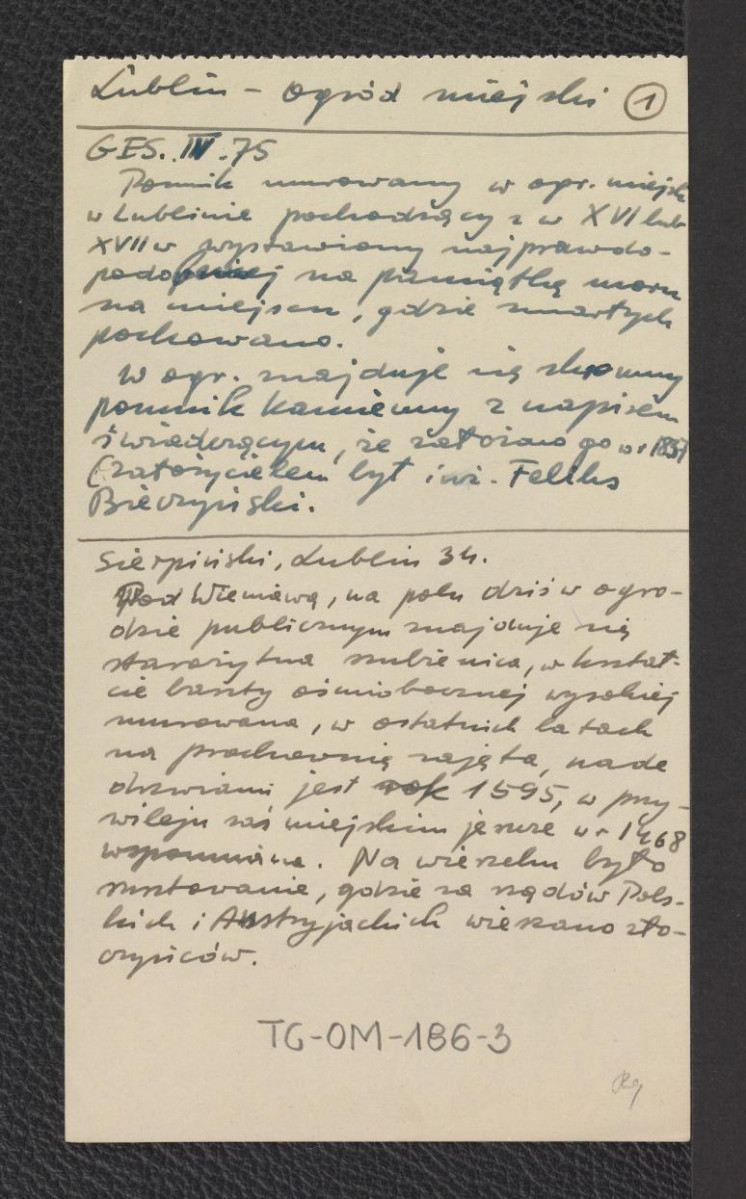 Lublin – ogród miejski 1
GES. IV. 75
Pomnik murowany w ogr. miejsk
w Lublinie pochodzący z w XVI lub
XVII w wystawiony najprawdo-
podobniej na pamiątkę moru
na miejscu, gdzie zmartych
pochowano.
W ogr. znajduje się skromny
pomnik kamienny z napisem
świadczącym, że założono go w r 1837
(założycielem był inż. Feliks
Bieczyński.
Sierpiński, Lublin 34.
Pod Wieniawą, na polu dziś w ogro-
dzie publicznym znajduje się
starożytna szubienica, w kształ-
cie baszty ośmiobocznej wysokiej
murowana, w ostatnich latach
na prochownię zajęta, nade
drzwiami jest rok 1595, w przy-
wileju zaś miejskim jeszcze w r 1468
wspomniana. Na wierzchu było
rusztowanie, gdzie za rządów Pols-
kich i Austryjackich wieszano zło-
czyńców.
TG-OM-186-3